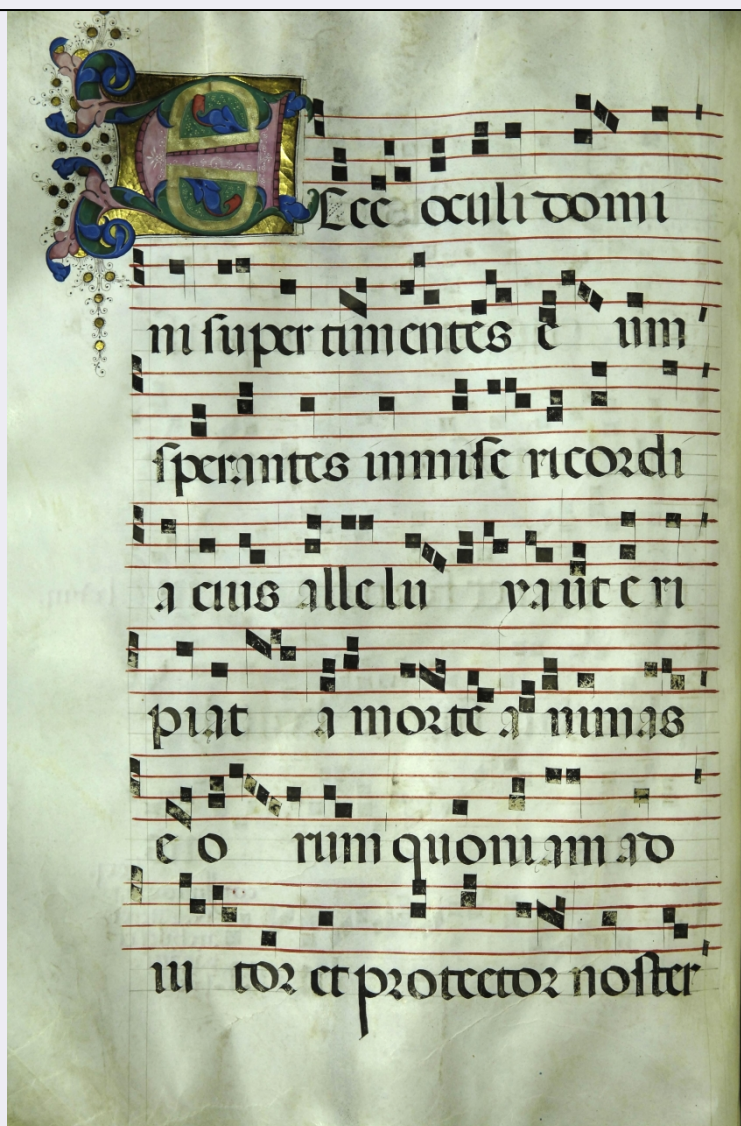 EEcce oculi domi
ni super timentes e um
sperantes in mise ricordi
a eius allelu ya ut e ri
piat a morte a nimas
e o rum quoniam ad
iu tor et protector noster